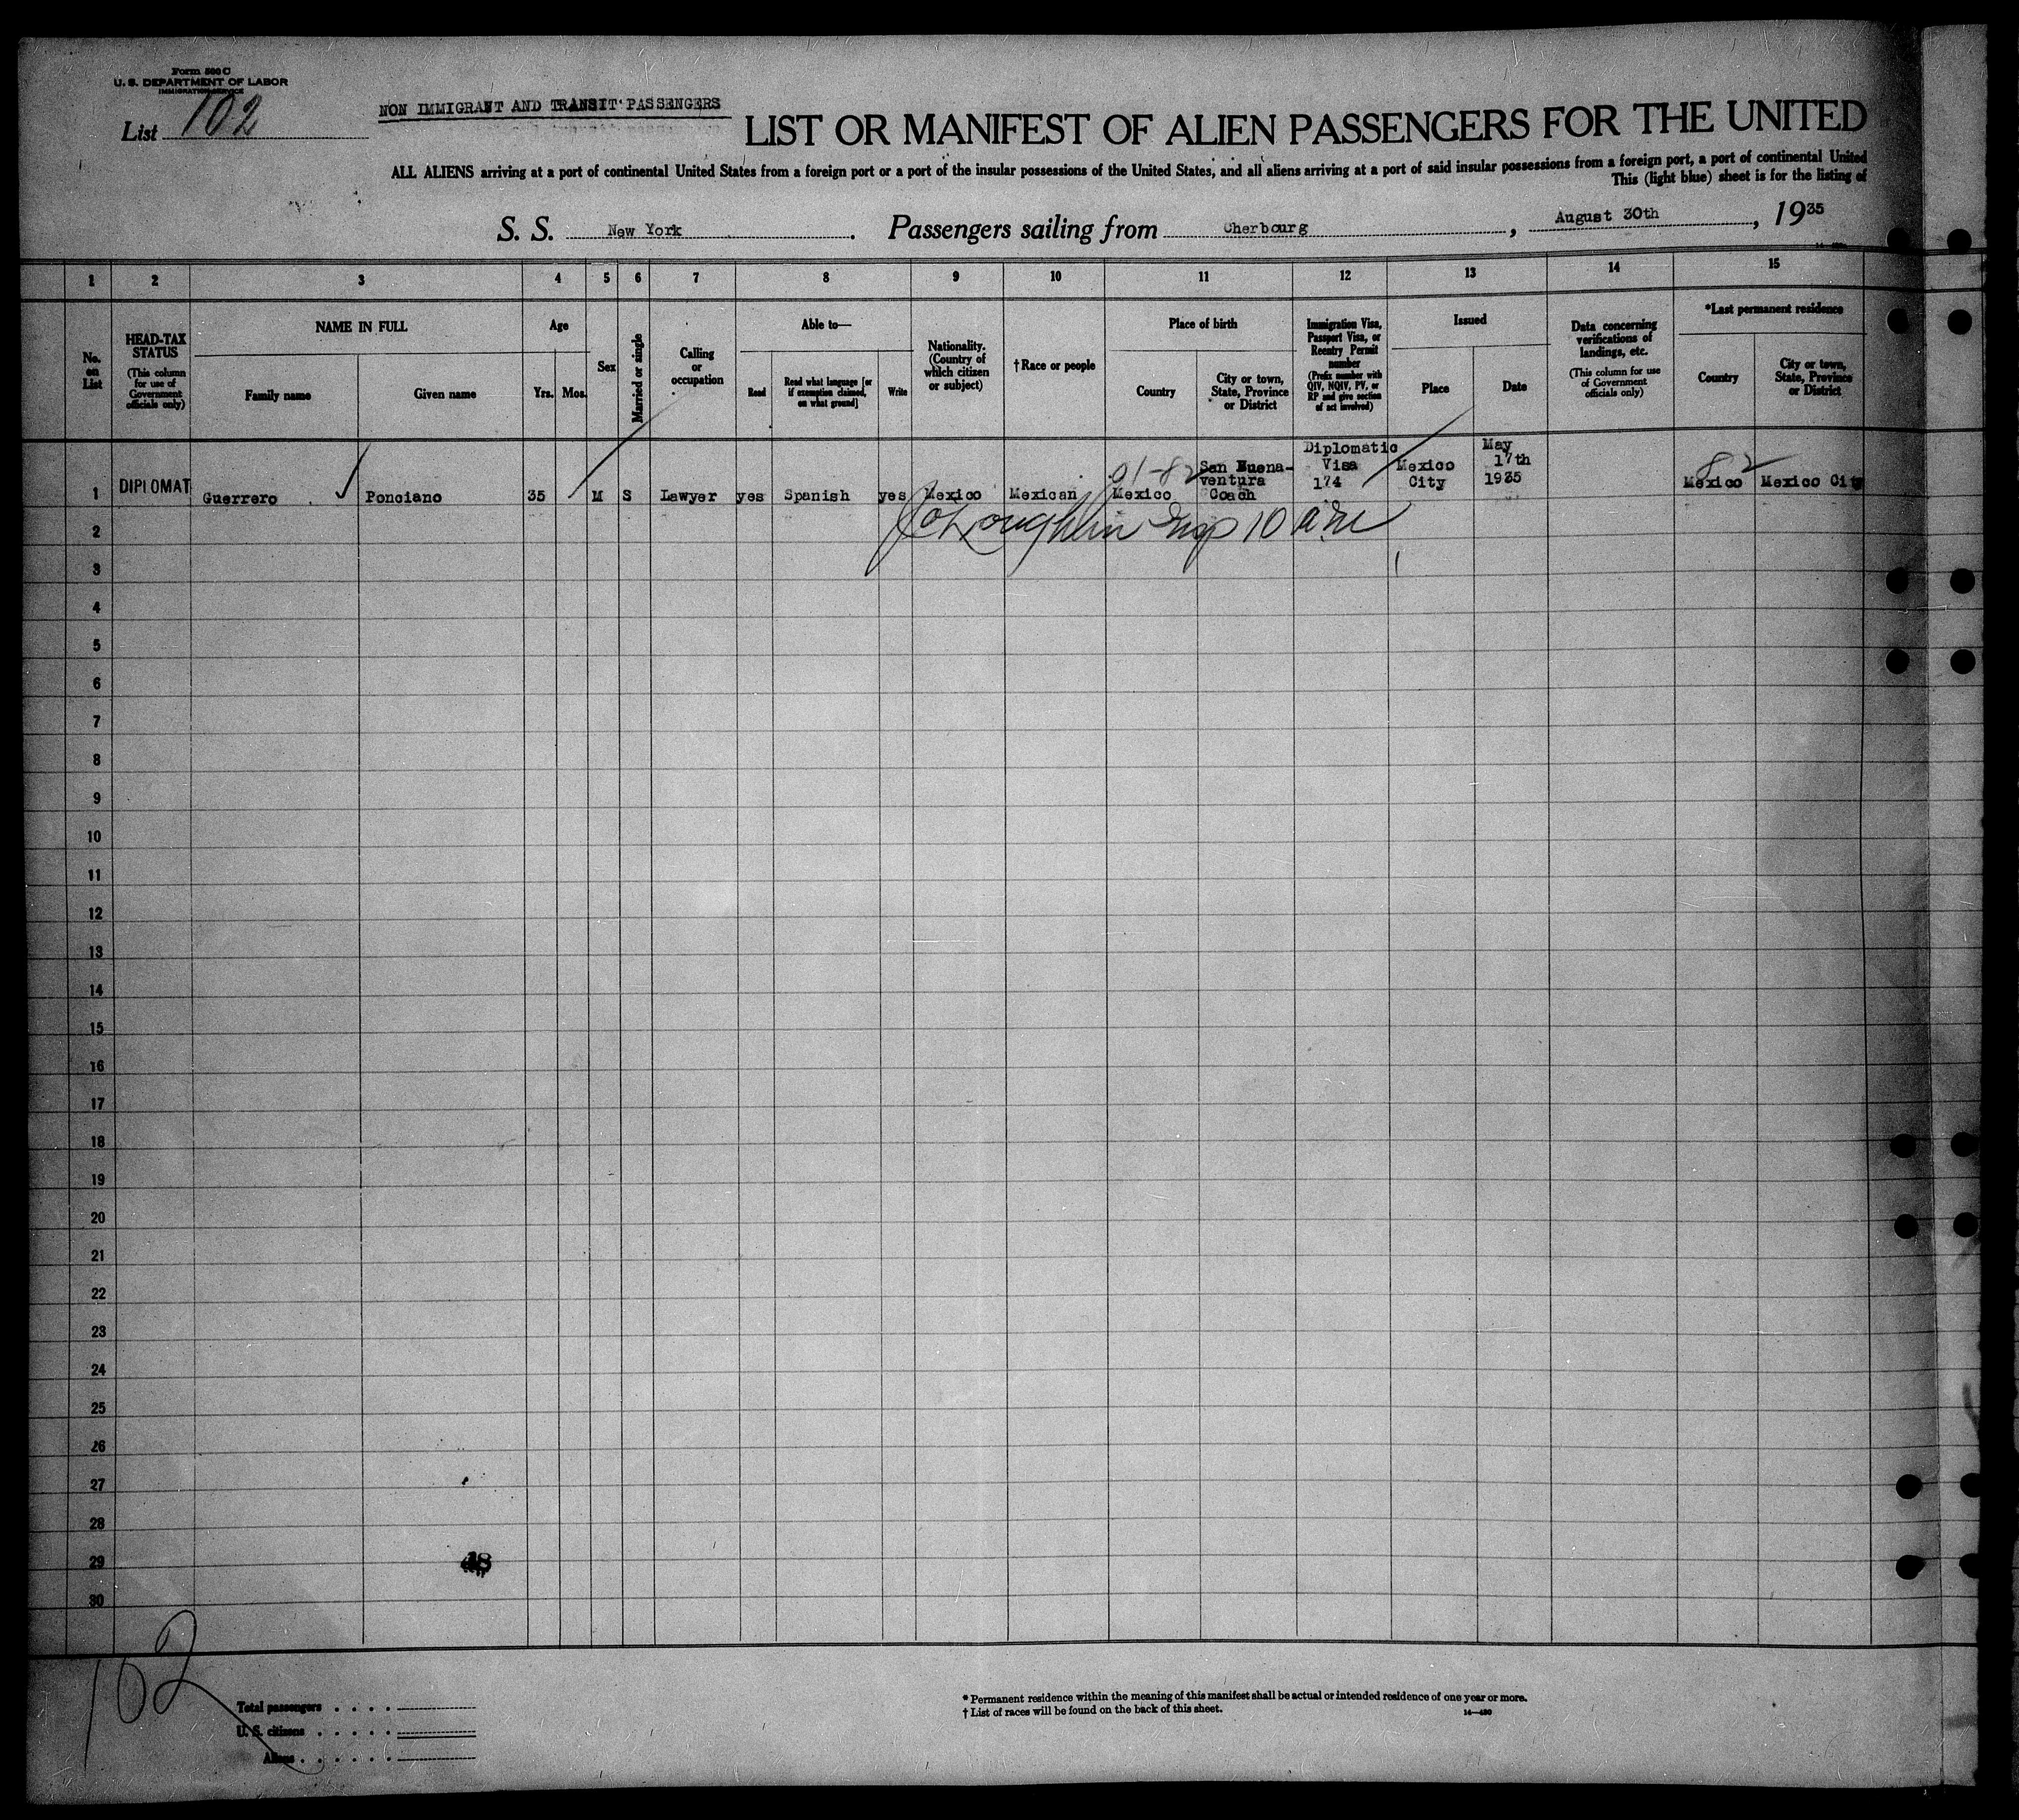 Form 500 C
U. S. DEPARTMENT OF LABOR
IMMIGRATION SERVICE
List 102
NON IMMIGRANT AND TRANSIT PASSENGERS
LIST OR MANIFEST OF ALIEN PASSENGERS FOR THE UNITED
ALL ALIENS arriving at a port of continental United States from a foreign port or a port of the insular possessions of the United States, and all aliens arriving at a port of said insular possessions from a foreign port, a port of continental United
This (light blue) sheet is for the listing of
S. S. New York. Passengers sailing from Cherbourg, August 30th, 1935
1 2 3 4 5 6 7 8 9 10 11 12 13 14 15
No. on List
HEAD-TAX STATUS
(This column for use of Government officials only)
NAME IN FULL
Family name
Given name
Age
Yrs. Mos.
Sex
Married or single
Calling or occupation
Able to—
Read
Read what language [or if exemption claimed, on what ground]
Write
Nationality. (Country of which citizen or subject)
†Race or people
Place of birth
Country
City or town, State, Province or District
Immigration Visa, Passport Visa, or Reentry Permit number
(Prefix number with QIV, NQIV, PV, or RP and give section of act involved)
Issued
Place
Date
Data concerning verifications of landings, etc.
(This column for use of Government officials only)
*Last permanent residence
Country
City or town, State, Province or District
1 DIPLOMAT Guerrero Ponciano 35 M S Lawyer yes Spanish yes Mexico Mexican Mexico San Buena-ventura Coach Diplomatic Visa 174 Mexico City May 17th 1935 Mexico Mexico City
01-82
82
2
3
4
5
6
7
8
9
10
11
12
13
14
15
16
17
18
19
20
21
22
23
24
25
26
27
28
29
30
102
Total passengers
U. S. citizens
Aliens
* Permanent residence within the meaning of this manifest shall be actual or intended residence of one year or more.
† List of races will be found on the back of this sheet.
14—430